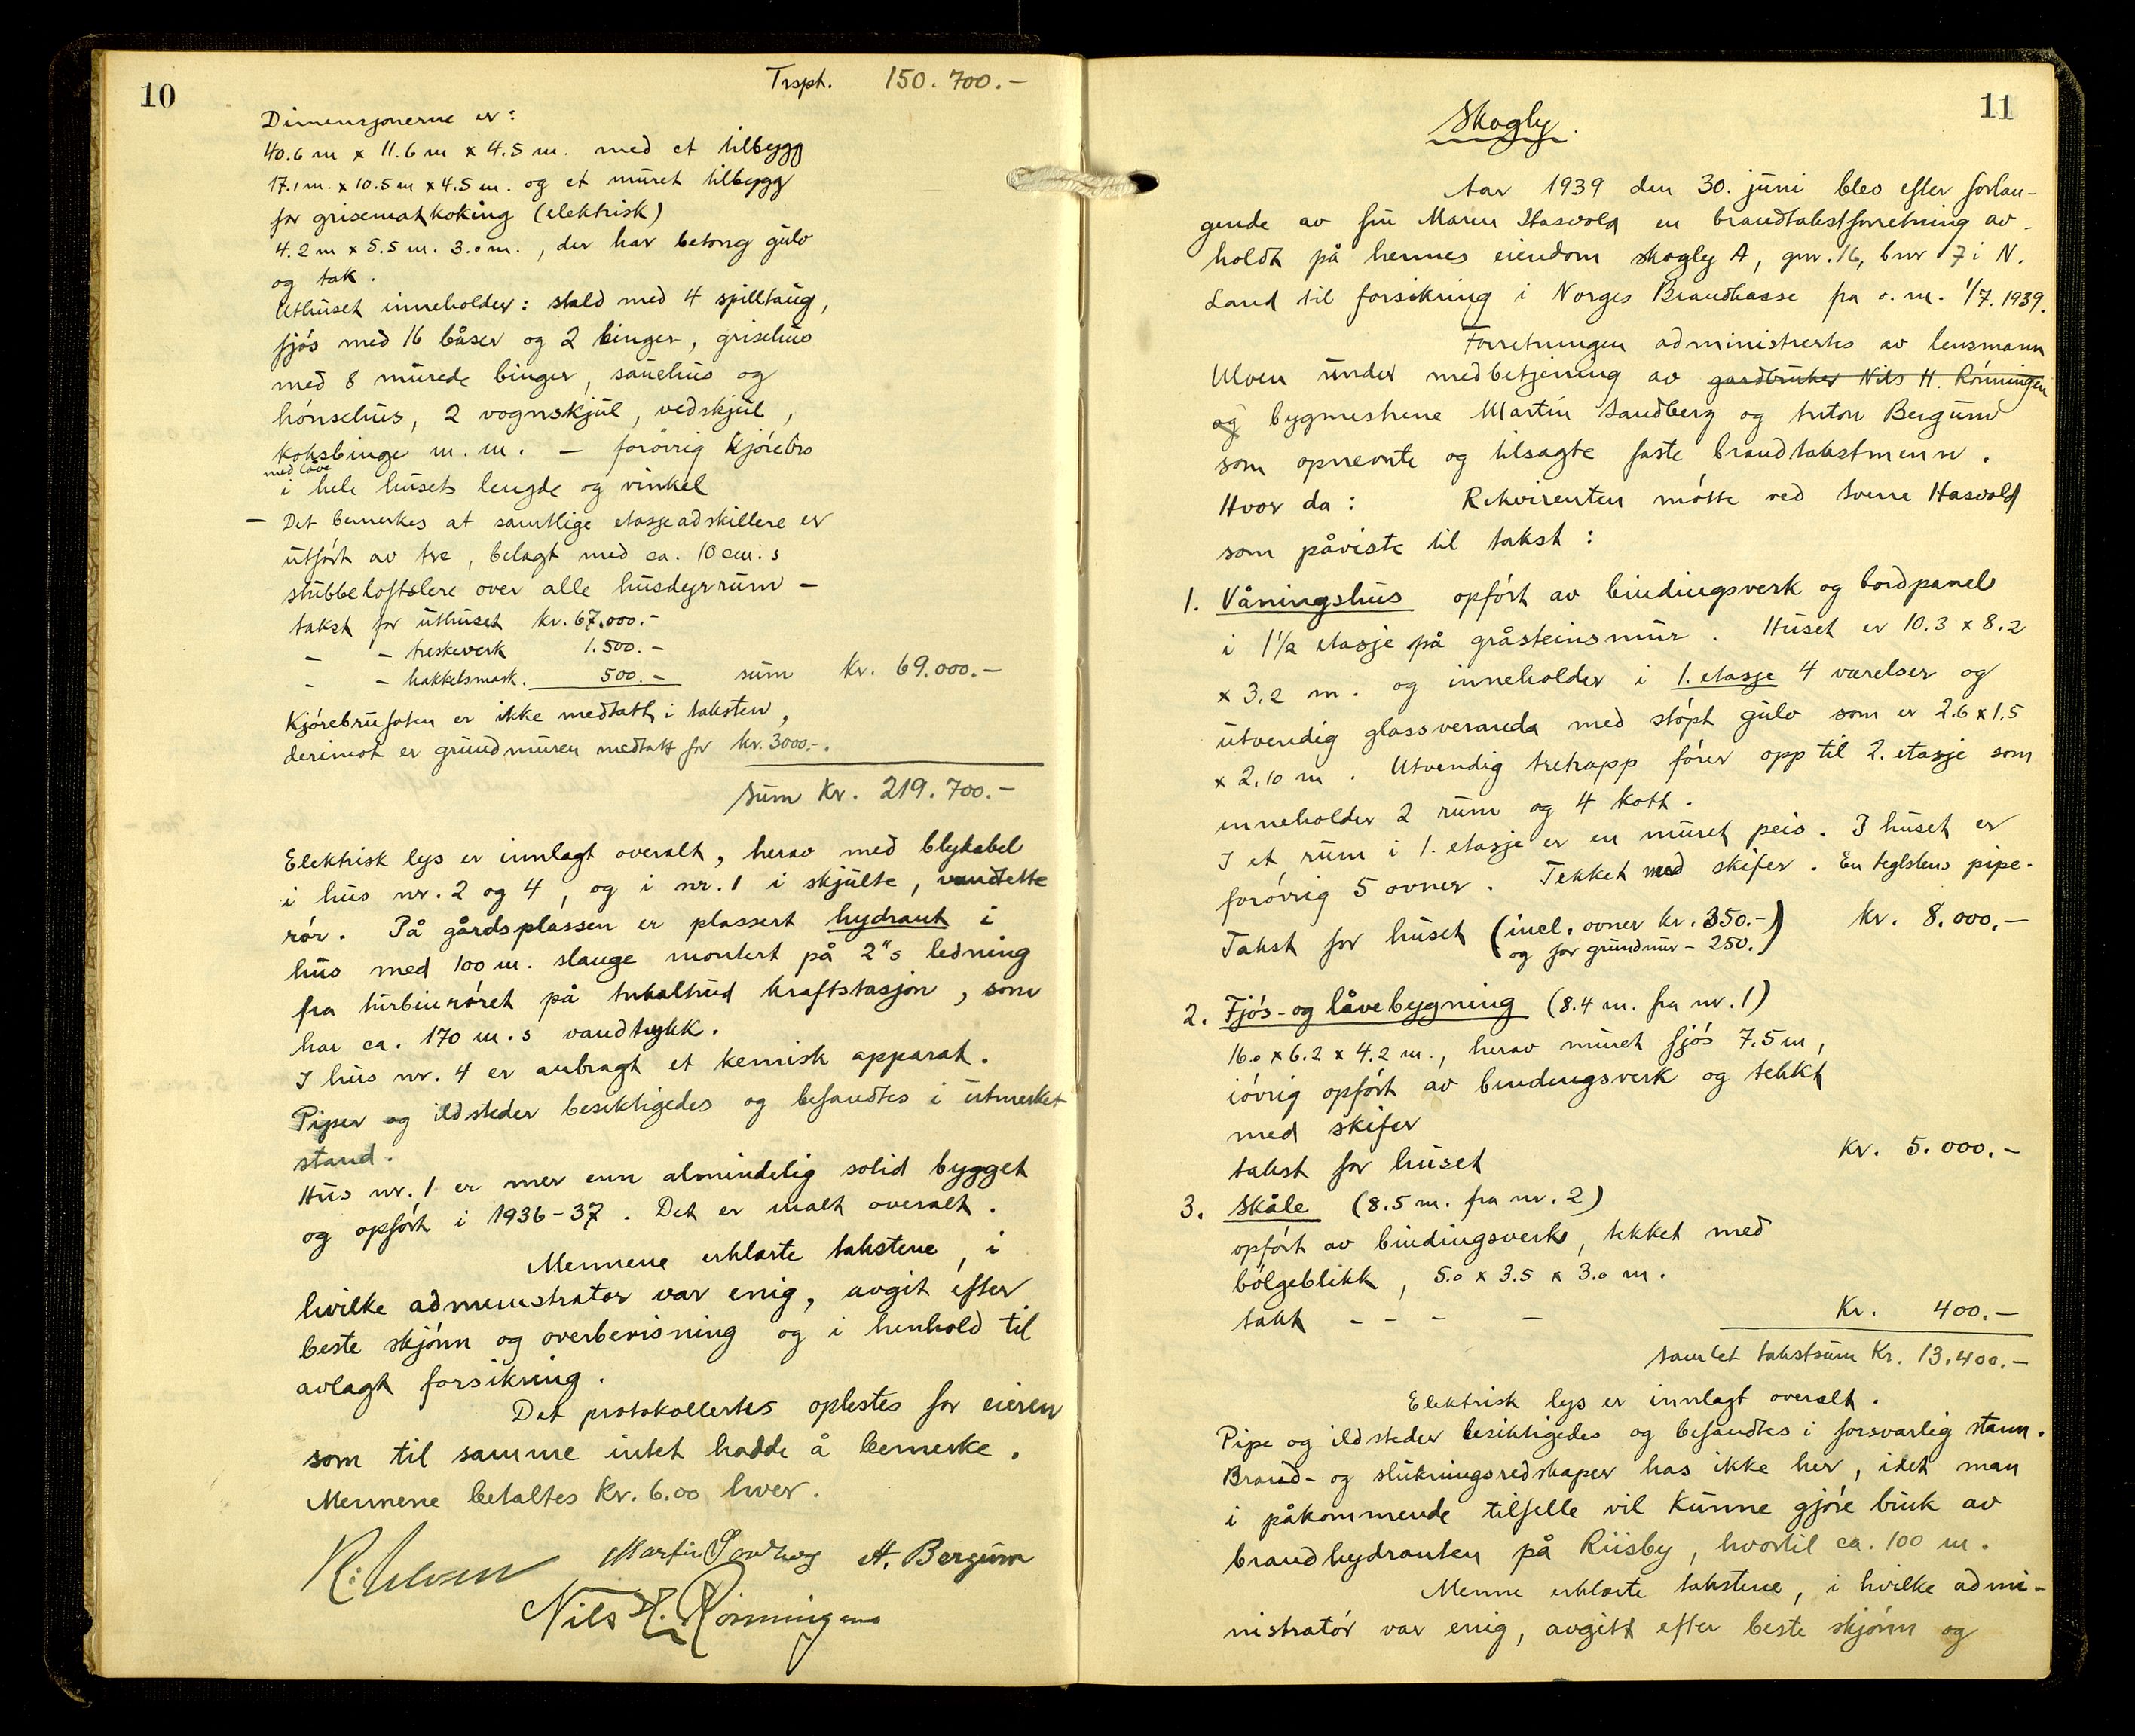 10
Trspt. 150.700.-
Dimensjonerne er:
40.6 m x 11.6 m x 4.5 m. med et tilbygg
17.1 m. x 10.5 m x 4.5 m. og et muret tilbygg
for grisematkoking (elektrisk)
4.2 m x 5.5 m. 3.0 m., der har betong gulv
og tak.
Uthuset inneholder: stald med 4 spilltaug,
fjøs med 16 båser og 2 binger, grisehus
med 8 murede binger, sauehus og
hønsehus, 2 vognskjul, vedskjul,
koksbinge m. m. - forøvrig kjørebro
med låve
i hele husets lengde og vinkel
- Det bemerkes at samtlige etasjeadskillere er
utført av tre, belagt med ca. 10 cm.s
stubbeloftslere over alle husdyrrum -
takst for uthuset kr. 67.000.-
- - treskeverk 1.500.-
- - hakkelsmask. 500.- sum kr. 69.000.-
Kjørebrufoten er ikke medtatt i taksten,
derimot er grundmuren medtatt for kr. 3000.-.
Sum Kr. 219.700.-
Elektrisk lys er innlagt overalt, herav med blykabel
i hus nr. 2 og 4, og i nr. 1 i skjulte, vandtette
rør. På gårdsplassen er plassert hydrant i
hus med 100 m. slange montert på 2"s ledning
fra turbinrøret på kraftstasjon, som
har ca. 170 m.s vandtrykk.
I hus nr. 4 er anbragt et kemisk apparat.
Piper og ildsteder besiktigedes og befandtes i utmerket
stand.
Hus nr. 1 er mer enn almindelig solid bygget
og opført i 1936-37. Det er malt overalt.
Mennene erklærte takstene, i
hvilke administrator var enig, avgit efter
beste skjønn og overbevisning og i henhold til
avlagt forsikring.
Det protokollertes oplestes for eieren
som til samme intet hadde å bemerke.
Mennene betaltes Kr. 6.00 hver.
R. Ulven Martin Sandberg A. Bergum
Nils H. Rönningen
11
Skogly.
Aar 1939 den 30. juni blev efter forlan-
gende av fru Maren Hasvold en brandtakstforretning av-
holdt på hennes eiendom skogly A, gnr. 16, bnr 7 i N.
Land til forsikring i Norges Brandkasse fra o. m. 1/7. 1939.
Forretningen administrertes av lensmann
Ulven under medbetjening av gardbruker Nils H. Rönningen
og bygmestrene Martin Sandberg og Anton Bergum
som opnevnte og tilsagte faste brandtakstmenn.
Hvor da: Rekvirenten møtte ved Sverre Hasvold
som påviste til takst:
1. Våningshus opført av bindingsverk og bordpanel
i 1 1/2 etasje på gråsteinsmur. Huset er 10.3 x 8.2
x 3.2 m. og inneholder i 1. etasje 4 værelser og
utvendig glassveranda med støpt gulv som er 2.6 x 1.5
x 2.10 m. Utvendig tretrapp fører opp til 2. etasje som
inneholder 2 rum og 4 kott.
I et rum i 1. etasje er en muret peis. I huset er
forøvrig 5 ovner. Tekket med skifer. En teglstens pipe.
Takst for huset (incl. ovner kr. 350.- kr. 8.000.-
og for grundmur - 250.)
2. Fjøs- og låvebygning (8.4 m. fra nr. 1)
16.0 x 6.2 x 4.2 m., herav muret fjøs 7.5 m,
iøvrig opført av bindingsverk og tekkt
med skifer
takst for huset Kr. 5.000.-
3. Skåle (8.5 m. fra nr. 2)
opført av bindingsverk, tekket med
bølgeblikk, 5.0 x 3.5 x 3.0 m.
takt - - - - Kr. 400.-
samlet takstsum Kr. 13.400.-
Elektrisk lys er innlagt overalt.
Pipe og ildsteder besiktigedes og befandtes i forsvarlig stann.
Brand- og slukningsredskaper has ikke her, idet man
i påkommende tilfelle vil kunne gjøre bruk av
brandhydranten på Riisby, hvortil ca. 100 m.
Menne erklærte takstene, i hvilke admi-
nistratör var enig, avgitt efter beste skjønn og